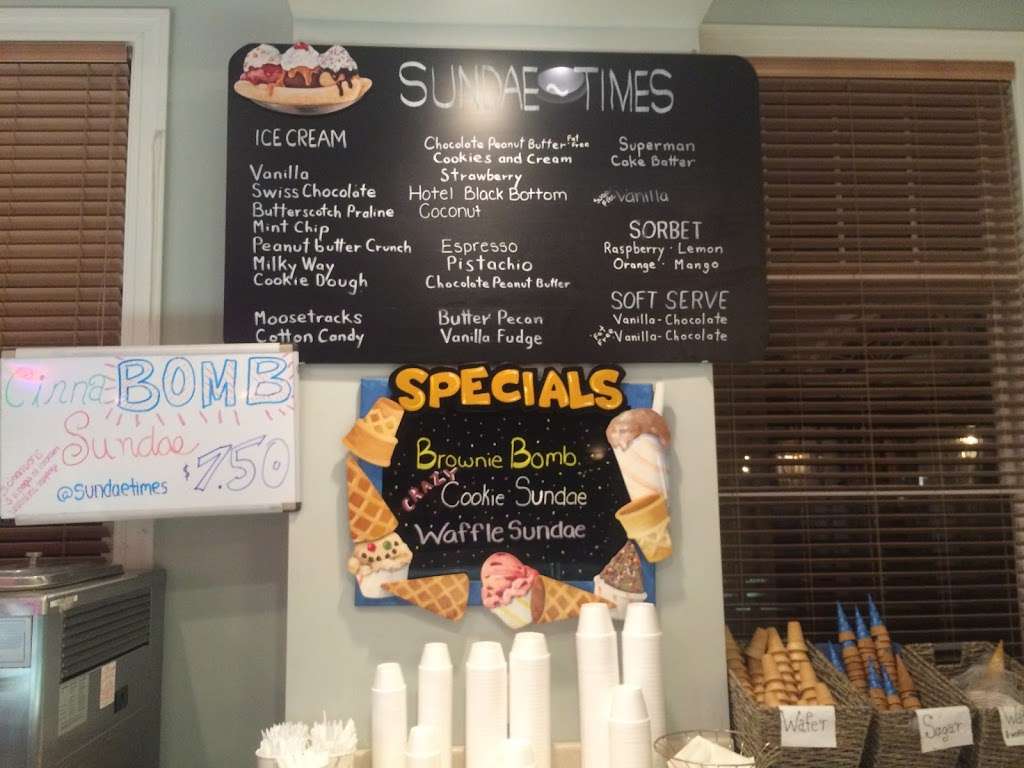 SUNDAE ~ TIMES
ICE CREAM
Vanilla
Swiss Chocolate
Butterscotch Praline
Mint Chip
Peanut butter Crunch
Milky Way
Cookie Dough
Moosetracks
Cotton Candy
Chocolate Peanut Butter Fat Free
Cookies and Cream
Strawberry
Hotel Black Bottom
Coconut
Espresso
Pistachio
Chocolate Peanut Butter
Butter Pecan
Vanilla Fudge
Superman
Cake Batter
Vanilla
SORBET
Raspberry · Lemon
Orange · Mango
SOFT SERVE
Vanilla - Chocolate
Vanilla - Chocolate
Cinna BOMB
Sundae
$7.50
@sundaetimes
SPECIALS
Brownie Bomb
CRAZY
Cookie Sundae
Waffle Sundae
Wafer
Sugar